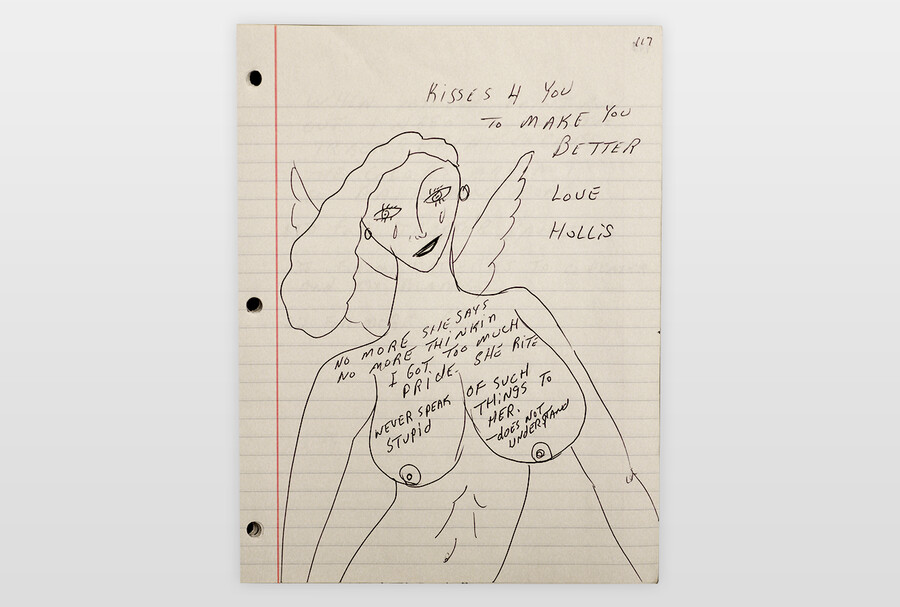 117
KISSES 4 YOU
TO MAKE YOU
BETTER
LOVE
HOLLIS
NO MORE SHE SAYS
NO MORE THINKIN
I GOT TOO MUCH
PRIDE. SHE RITE
NEVER SPEAK
STUPID
OF SUCH
THINGS TO
HER.
DOES NOT
UNDERSTAND